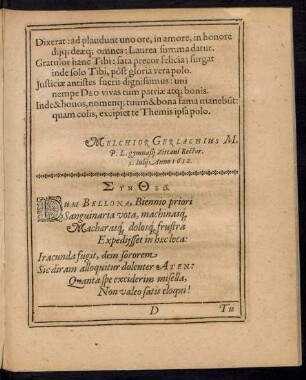 Dixerat: ad plaudunt uno ore, in amore, in honore
dijq; deæq; omnes: Laurea summa datur.
Gratulor hanc Tibi: fata precor felicia; surgat
inde solo Tibi, pôst gloria vera polo.
Justiciæ antistes factis dignissimus: uni
nempe DEO vivas cum patriæ atq; bonis.
Inde & honos, nomenq; tuum & bona fama manebũt:
quam colis, excipiet te Themis ipsa polo.
MELCHIOR GERLACHIUS M.
P. L. gymnasij Zittani Rector.
5. Iulij. Anno 1612.
Σὺν Θεῷ.
DUM BELLONA, Biennio priori
Sanguinaria vota, machinasq́,
Macharasq́, dolosq́, frustra
Expedijsset in hæc loca:
Iracunda fugit, dem sororem
Sic diram alloquitur dolenter ATEN:
Quanta spe exciderim misella,
Non valeo satis eloqui!
D Tu